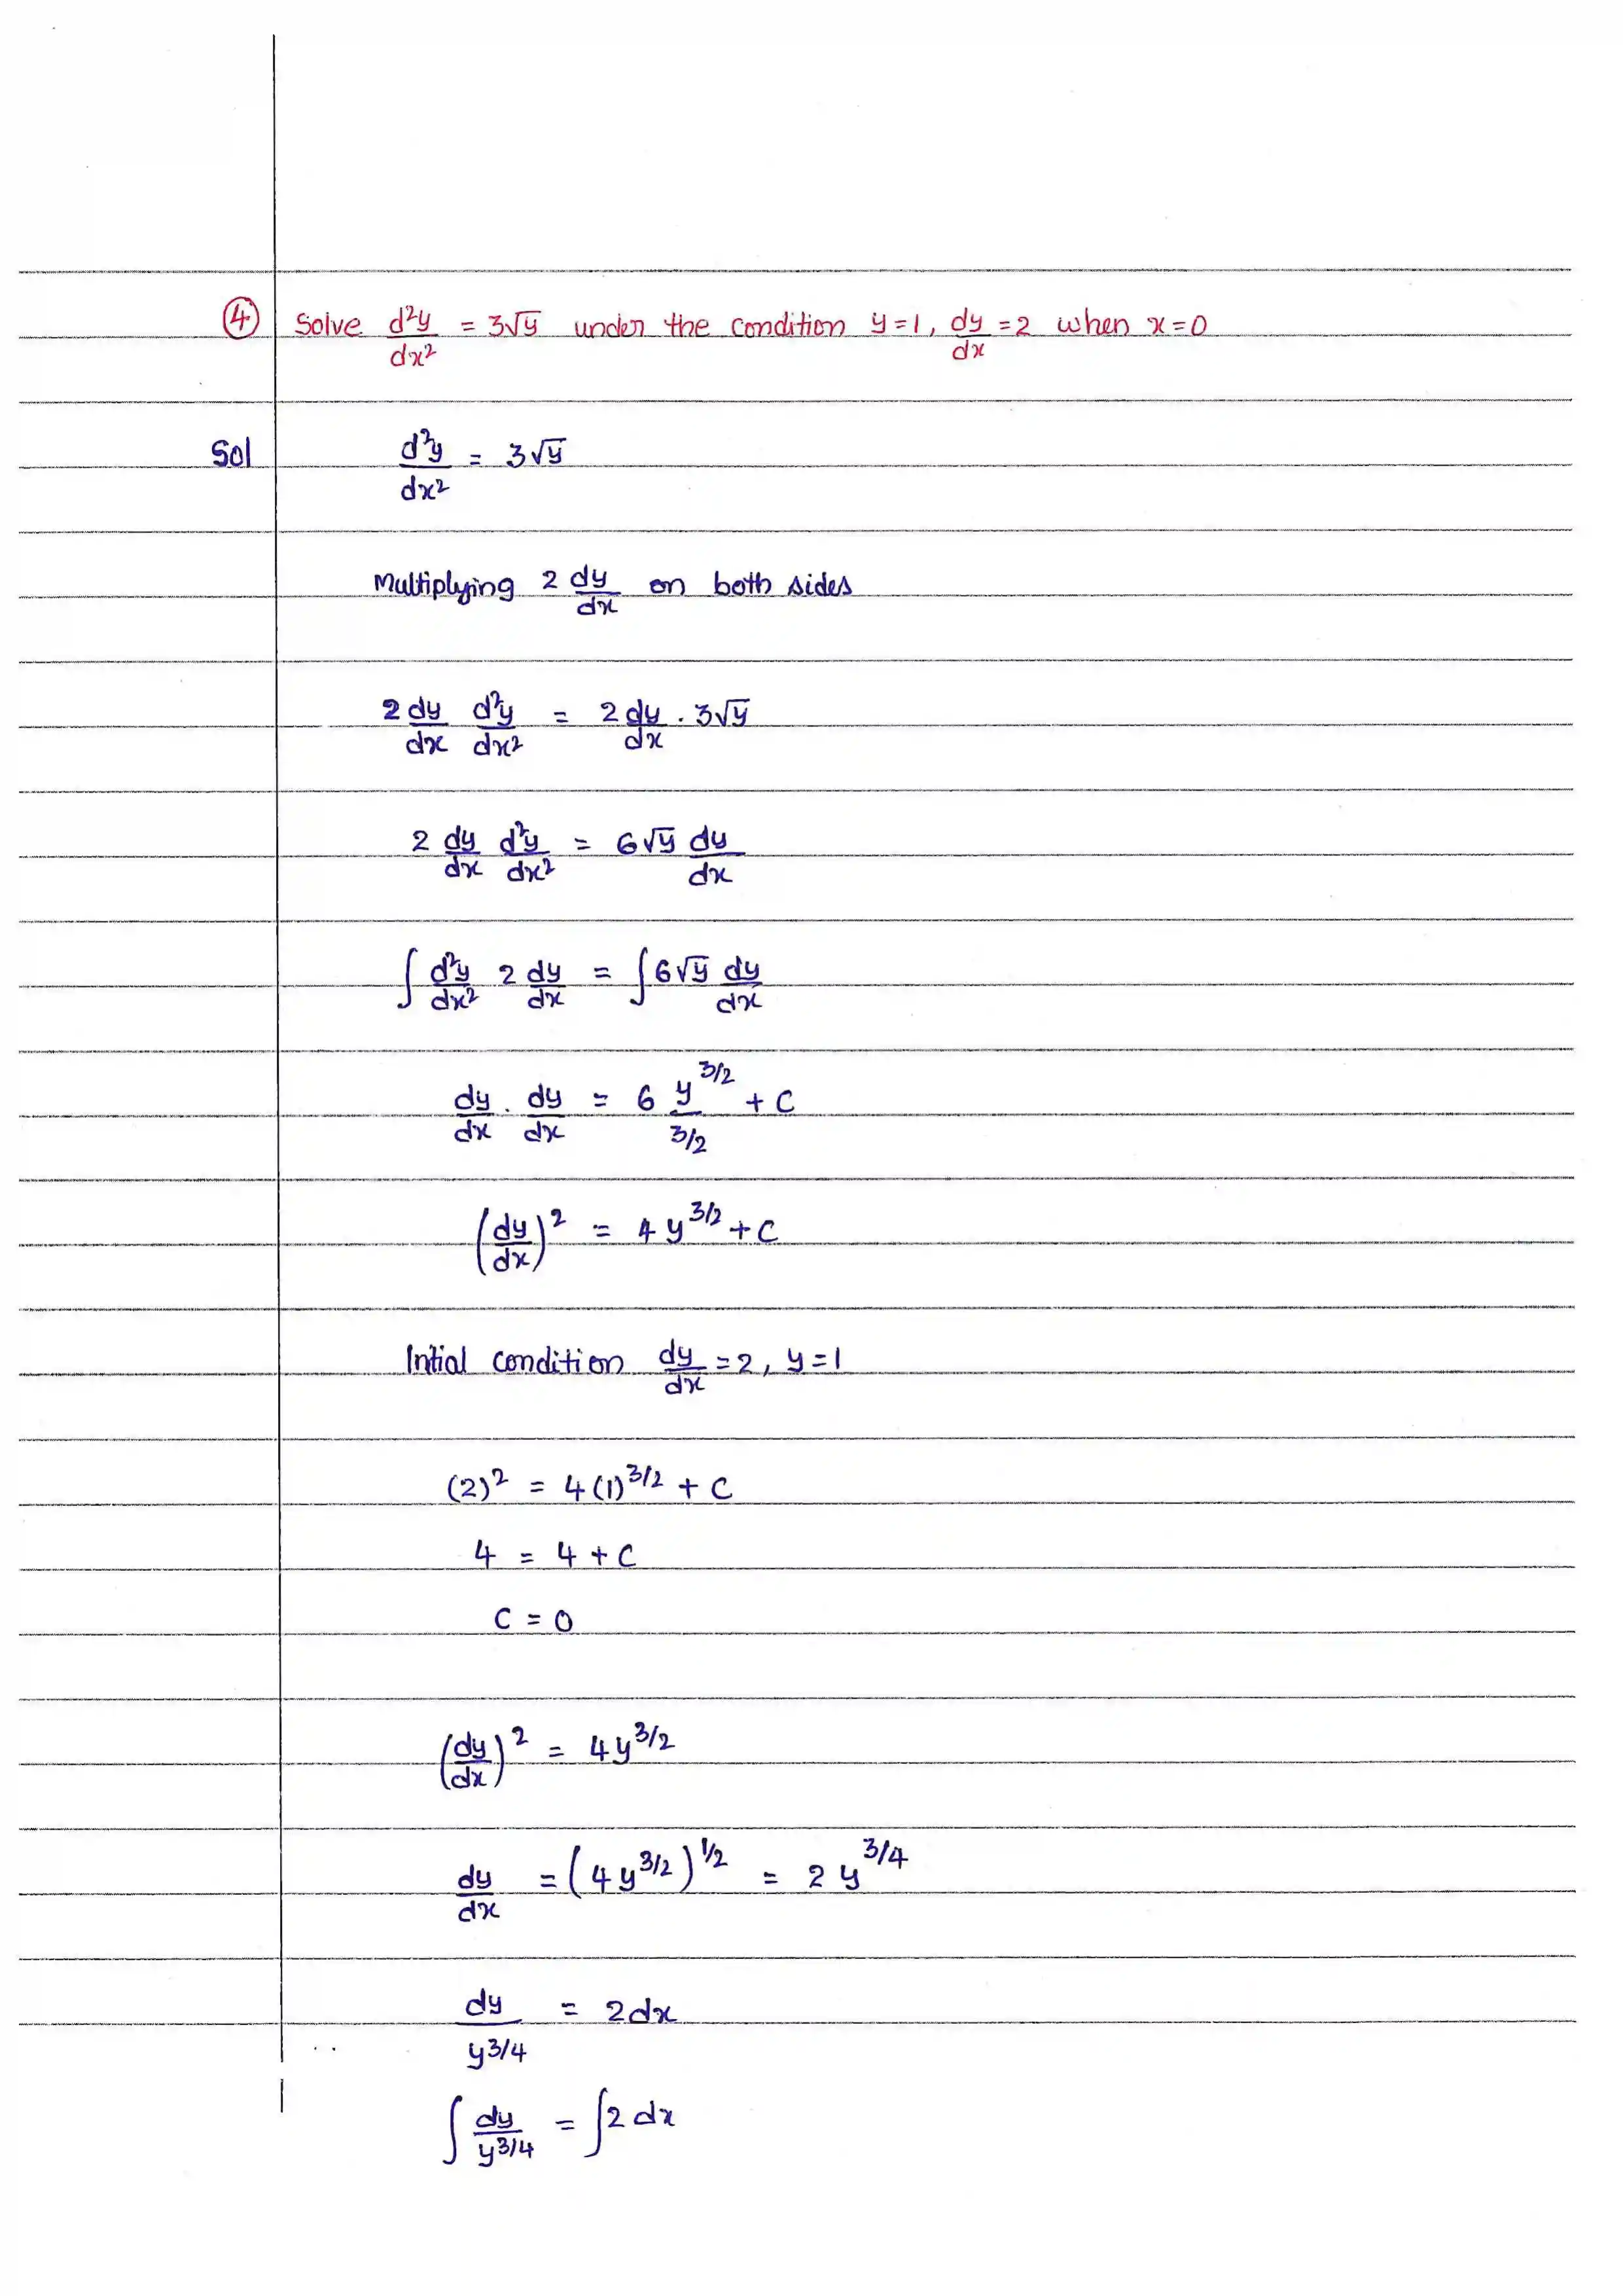 ④ Solve d²y/dx² = 3√y under the condition y=1, dy/dx =2 when x=0
Sol d²y/dx² = 3√y
Multiplying 2 dy/dx on both sides
2 dy/dx d²y/dx² = 2 dy/dx . 3√y
2 dy/dx d²y/dx² = 6√y dy/dx
∫ d²y/dx² 2 dy/dx = ∫ 6√y dy/dx
dy/dx . dy/dx = 6 y^3/2 / 3/2 + C
(dy/dx)² = 4 y^3/2 + C
Intial condition dy/dx =2, y=1
(2)² = 4(1)^3/2 + C
4 = 4 + C
C = 0
(dy/dx)² = 4y^3/2
dy/dx = (4y^3/2)^1/2 = 2 y^3/4
dy/y^3/4 = 2dx
∫ dy/y^3/4 = ∫2 dx